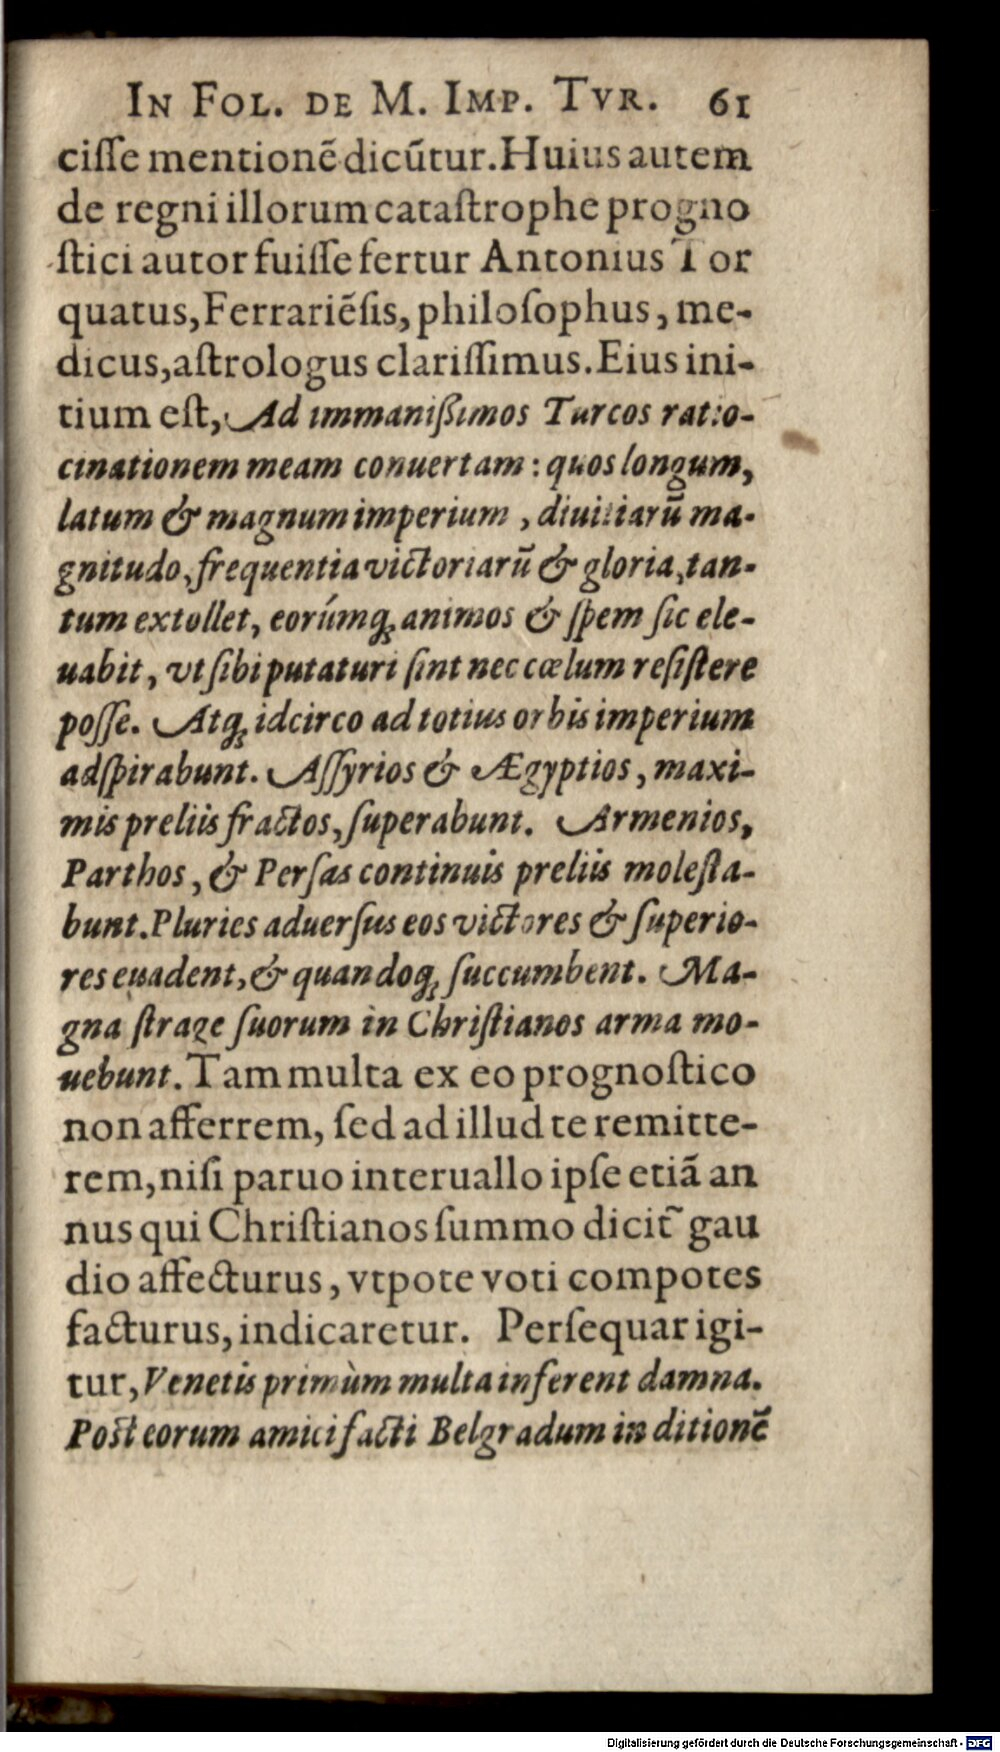 In Fol. de M. Imp. Tvr. 61
ciſſe mentionē dicūtur. Huius autem
de regni illorum cataſtrophe progno
ſtici autor fuiſſe fertur Antonius Tor
quatus, Ferrariēſis, philoſophus, me-
dicus, aſtrologus clariſſimus. Eius ini-
tium eſt, Ad immanißimos Turcos ratio-
cinationem meam conuertam: quos longum,
latum & magnum imperium, diuitiarū ma-
gnitudo, frequentia victoriarū & gloria, tan-
tum extollet, eorúmq; animos & ſpem ſic ele-
uabit, vt ſibi putaturi ſint nec cœlum reſiſtere
poſſe. Atq; idcirco ad totius orbis imperium
adſpirabunt. Aſſyrios & Ægyptios, maxi-
mis preliis fractos, ſuperabunt. Armenios,
Parthos, & Perſas continuis preliis moleſta-
bunt. Pluries aduerſus eos victores & ſuperio-
res euadent, & quandoq; ſuccumbent. Ma-
gna ſtrage ſuorum in Chriſtianos arma mo-
uebunt. Tam multa ex eo prognoſtico
non afferrem, ſed ad illud te remitte-
rem, niſi paruo interuallo ipſe etiā an
nus qui Chriſtianos ſummo dicit̃ gau
dio affecturus, vtpote voti compotes
facturus, indicaretur. Perſequar igi-
tur, Venetis primùm multa inferent damna.
Poſt eorum amici facti Belgradum in ditionē
Digitalisierung gefördert durch die Deutsche Forschungsgemeinschaft - DFG